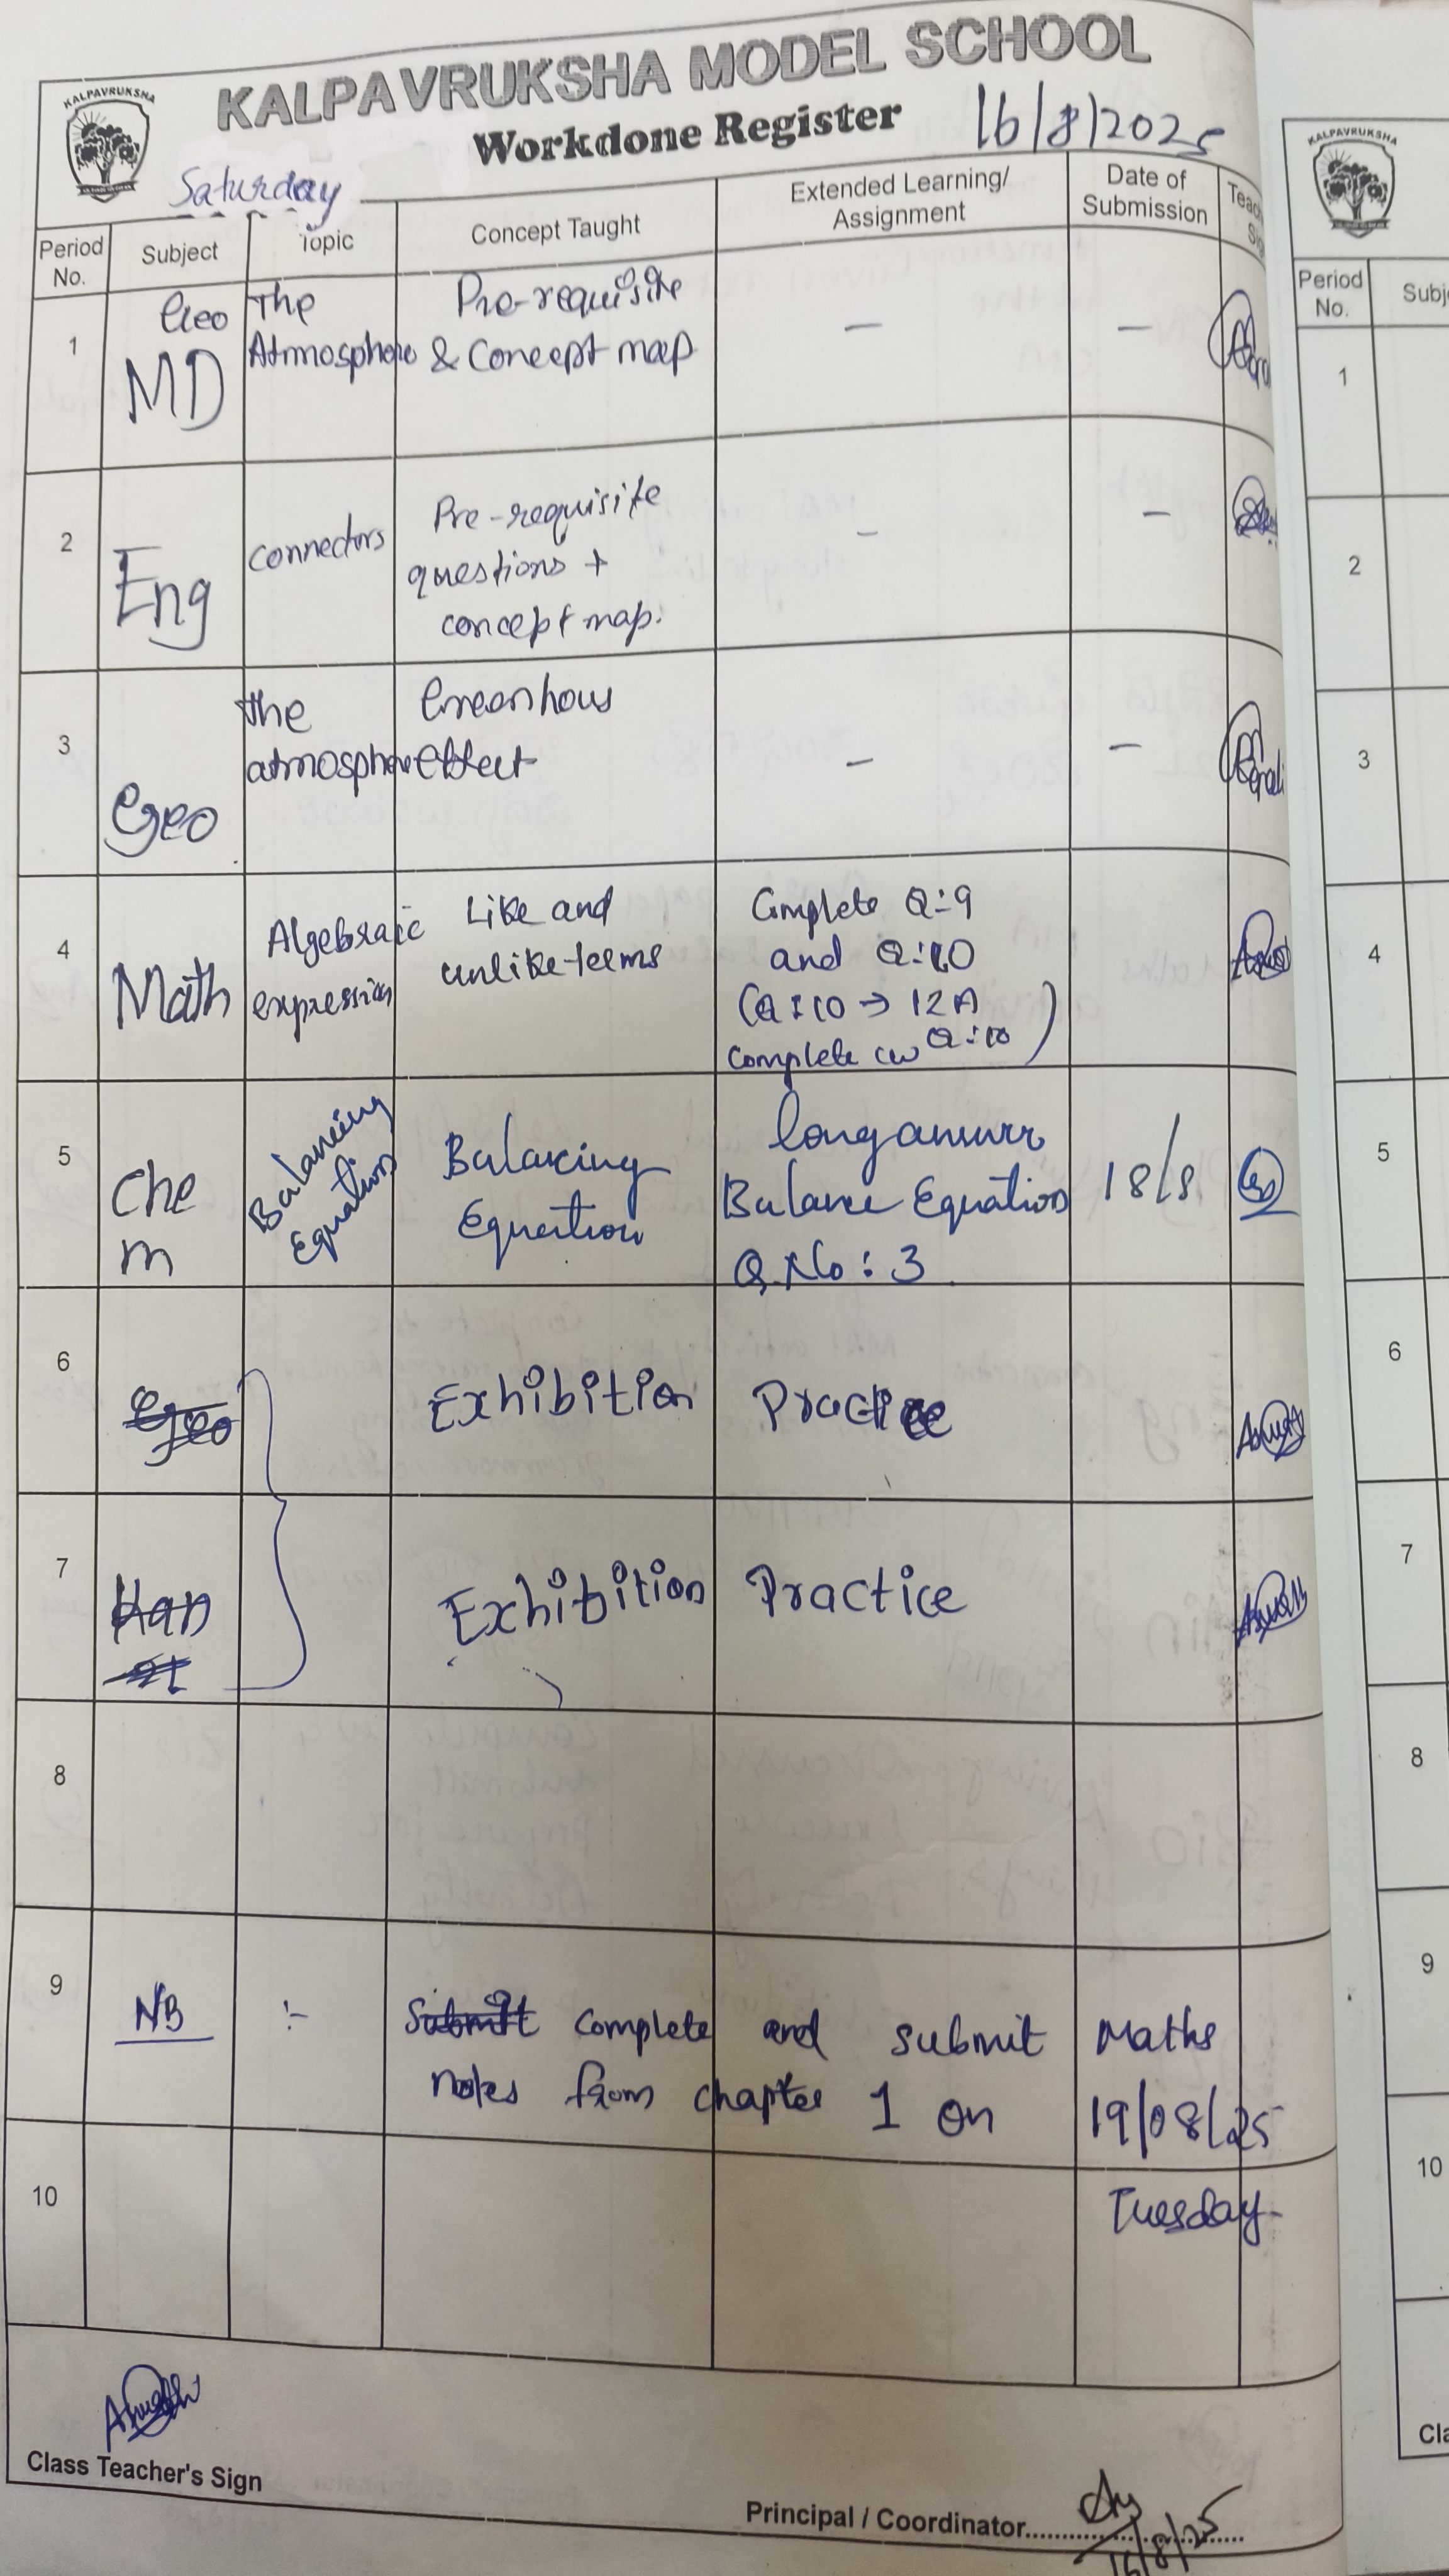 KALPAVRUKSHA MODEL SCHOOL
KALPAVRUKSHA
Workdone Register
16/8/2025
Saturday
Period No.
Subject
Topic
Concept Taught
Extended Learning/
Assignment
Date of
Submission
1
Geo
MD
The
Atmosphere
Pre-requisite
& Concept map
–
–
2
Eng
connectors
Pre-requisite
questions +
concept map.
–
–
3
Geo
the
atmosphere
Greenhous
effect
–
–
4
Math
Algebraic
expression
Like and
unlike terms
Complete Q:9
and Q:10
(Q:10 → 12A
complete cw Q:10)
5
Che
m
Balancing
Equation
Balancing
Equation
long answer
Balance Equation
Q.No : 3
18/8
6
Geo
Exhibition Practice
7
Kan
Exhibition Practice
8
9
NB :- Submit complete and submit Maths
notes from chapter 1 on 19/08/25
10
Tuesday
Class Teacher's Sign
Principal / Coordinator
16/8/25
KALPAVRUKSHA
Period
No.
Subj
1
2
3
4
5
6
7
8
9
10
Cla